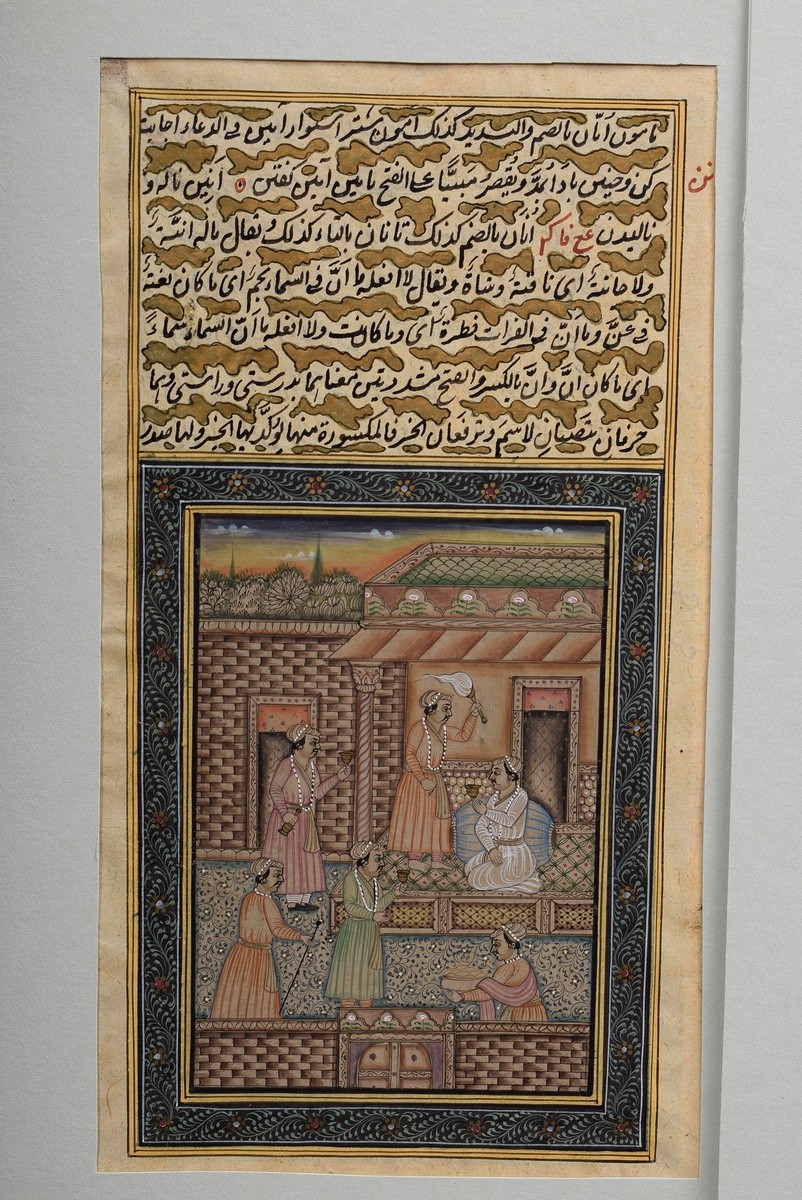 مامون امّان بالضم والتشدید کذلک امون شتر استوار آمین فی الدعاء اجابت
کن و چنین باد یُمَدُّ و یُقصَرُ مبنیًّا علی الفتح تامین آمین گفتن ه انین ناله و
نالیدن ع ف اُنان بالضم کذلک تانان بالتاء کذلک و یقال ماله انّة
ولا حانّة ای ناقة و شاة و یقال لا افعله ما انّ فی السماء نجم ای ما کان لغة
فی عنّ و ما انّ فی الفرات قطرة ای و ما کانت ولا افعله ما انّ السماء سماءً
ای ما کان انّ و اِنّ بالکسر والفتح مشددتین معناهما بدرستی و راستی و هما
حرفان ینصبان لاسم و یرفعان الخبر فالمکسورة منهما یؤکّد بها الخبر و لها صدر